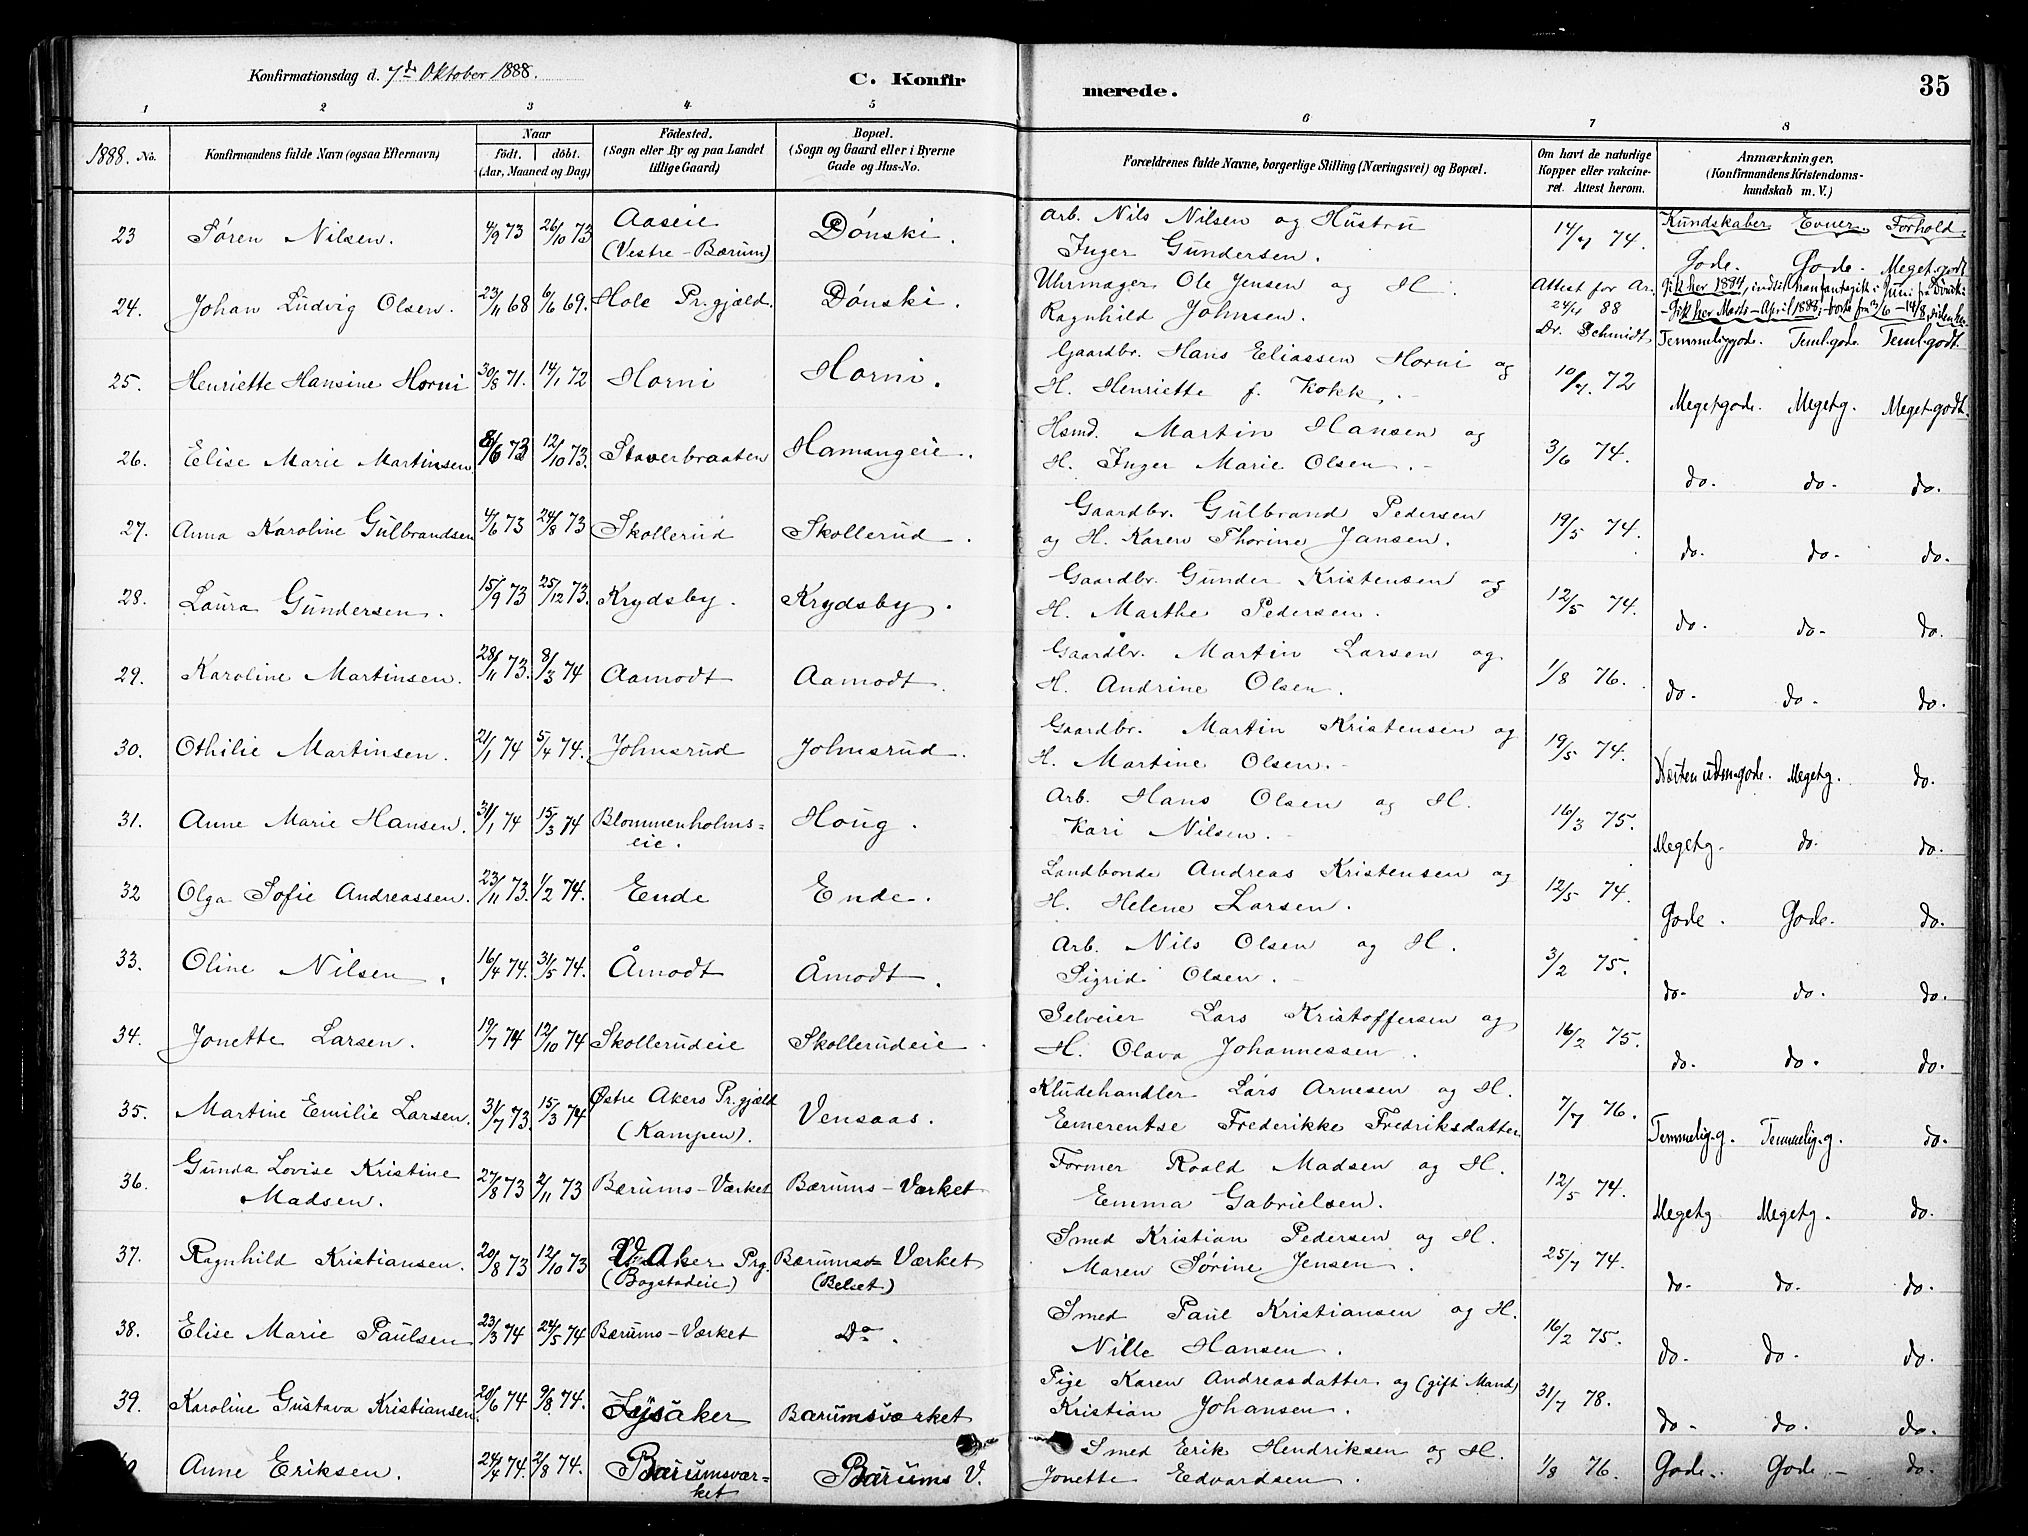 Konfirmationsdag d. 7de Oktober 1888.
C. Konfirmerede.
35
1 2 3 4 5 6 7 8
1888. No.
Konfirmandens fulde Navn (ogsaa Efternavn)
Naar
födt. döbt.
(Aar, Maaned og Dag)
Födested.
(Sogn eller By og paa Landet
tillige Gaard)
Bopæl.
(Sogn og Gaard eller i Byerne
Gade og Hus-No.
Forældrenes fulde Navne, borgerlige Stilling (Næringsvei) og Bopæl.
Om havt de naturlige
Kopper eller vakcine-
ret. Attest herom.
Anmærkninger.
(Konfirmandens Kristendoms-
kundskab m. V.)
Kundskaber Evner Forhold
23 Søren Nilsen. 4/9 73 26/10 73 Aaseie Dønski. Arb. Nils Nilsen og Hustru 14/7 74.
(Vestre-Bærum) Inger Gundersen. Gode. Gode. Meget godt
24. Johan Ludvig Olsen. 23/11 68 6/6 69. Hole Pr.gjæld. Dønski. Uhrmager Ole Jensen og H. Attest for Ar. Gik her 1884,
Ragnhild Johnsen. 24/4 88 - Gik her Marts-April 1888, borte fra 3/6-14/8,
Dr. Schmidt Temmelig gode. Teml. gode. Teml. godt.
25. Henriette Hansine Horni 30/8 71. 14/1 72 Horni Horni. Gaardbr. Hans Eliassen Horni og 10/7. 72
H. Henriette f. Kokk. Meget gode. Meget g. Meget godt.
26. Elise Marie Martinsen 8/6 73 12/10 73. Staverbraaten Hamangeie. Hsmd. Martin Hansen og 3/6 74.
H. Inger Marie Olsen. do. do. do.
27. Anna Karoline Gulbrandsen 4/6 73 24/8 73 Skollerud Skollerud. Gaardbr. Gulbrand Pedersen 19/5 74.
og H. Karen Thorine Jansen. do. do. do.
28. Laura Gundersen. 15/9 73 25/12 73. Krydsby. Krydsby. Gaardbr. Gunder Kristensen og 12/5 74.
H. Marthe Pedersen. do. do. do.
29. Karoline Martinsen. 28/11 73. 8/3 74 Aamodt Aamodt. Gaardbr. Martin Larsen og 1/8 76.
H. Andrine Olsen. do. do. do.
30. Othilie Martinsen. 21/1 74 5/4 74. Johnsrud Johnsrud. Gaardbr. Martin Kristensen og 19/5 74.
H. Martine Olsen. Næsten udm. gode. Meget g. do.
31. Anne Marie Hansen. 31/1 74 15/3 74 Blommenholms= Houg. Arb. Hans Olsen og H. 16/3 75.
eie. Kari Nilsen. Meget g. do. do.
32 Olga Sofie Andreassen. 23/11 73. 1/2 74. Ende Ende. Landbonde Andreas Kristensen og 12/5 74.
H. Helene Larsen. Gode. Gode. do.
33. Oline Nilsen. 16/4 74. 31/5 74. Åmodt Åmodt. Arb. Nils Olsen og H. 3/2 75.
Sigrid Olsen. do. do. do.
34. Jonette Larsen. 19/7 74 12/10 74 Skollerudeie Skollerudeie. Selveier Lars Kristoffersen og 16/2 75.
H. Olava Johannessen. do. do. do.
35. Martine Emilie Larsen. 31/7 73. 15/3 74 Østre Akers Pr.gjæld Vensaas. Kludehandler Lars Arnesen og H. 7/7 76.
(Kampen). Emerentse Frederikke Fredriksdatter Temmelig g. Temmelig g. do.
36. Gunda Lovise Kristine 27/8 73 2/11 73 Bærums-Værket Bærums-Værket Former Roald Madsen og H. 12/5 74.
Madsen. Emma Gabrielsen. Meget g Meget g. do.
37. Ragnhild Kristiansen. 20/8 73 12/10 73 V. Aker Prg. Bærums Værket Smed Kristian Pedersen og H. 25/7 74.
(Bogstadeie) (Belset) Maren Sørine Jensen. do. do. do.
38. Elise Marie Paulsen 23/3 74 24/5 74 Bærums-Værket Do. Smed Paul Kristiansen og H. 16/2 75.
Nille Hansen. do. do. do.
39. Karoline Gustava Kristiansen. 20/6 74 9/8. 74. Lysaker Bærumsværket Pige Karen Andreasdatter og (gift Mand) 31/7 78.
Kristian Johansen. do. do. do.
Anne Eriksen. 24/4 74. 2/8 74. Bærumsvær- Bærums V. Smed Erik Hendriksen og H. 1/8 76. Gode. Gode. do.
ket Jonette Edvardsen.